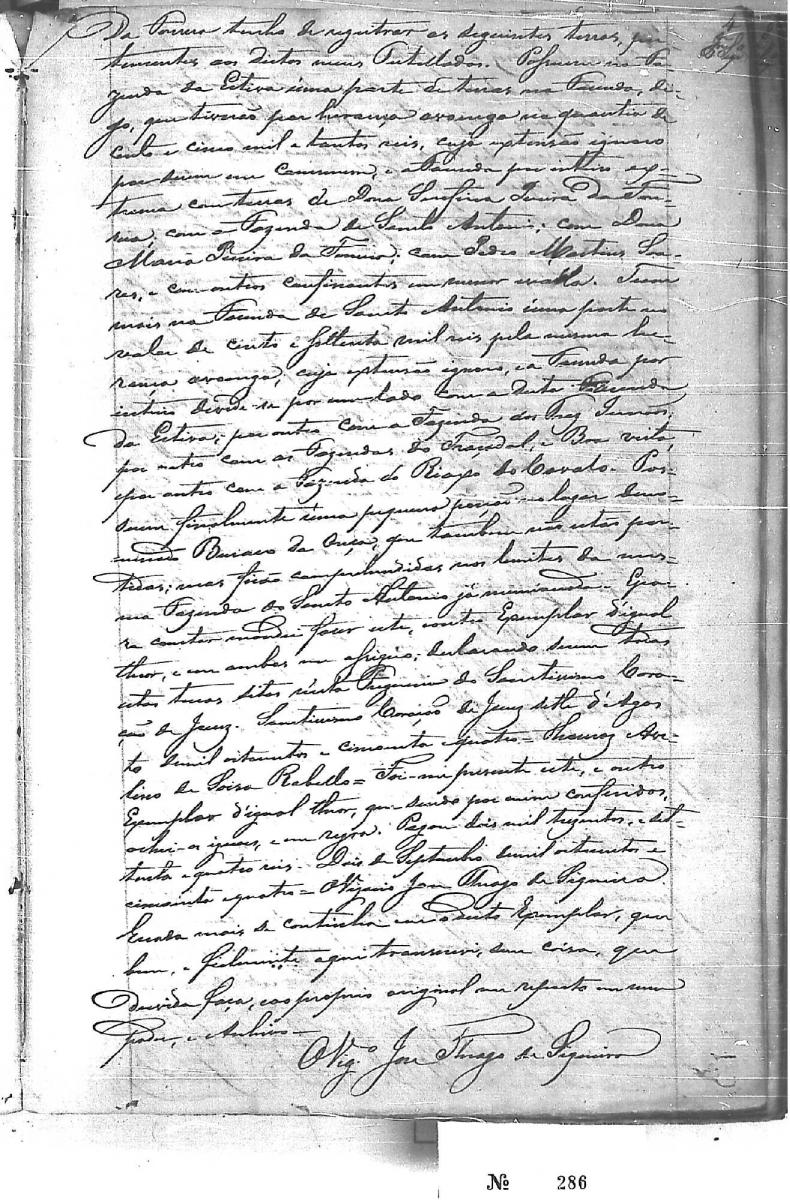 Da Fonseca tenho de registrar as seguintes terras, per-
tencentes aos ditos meus Tutellados. Possuem na Fa-
zenda da Estiva uma parte de terras na Fazenda, di-
go, que tiverão por herança avoenga na quantia de
cento e cinco mil e tantos reis, cuja extensão ignoro
por serem em commum, e a Fazenda por inteiro ex-
trema com terras de Dona Serafina da Fon-
seca, com a Fazenda de Santo Antonio; com Dona
Maria Pereira da Fonseca; com Pedro Martins Soa-
res, e com outros confinantes em menor escalla. Tem
mais na Fazenda de Santo Antonio uma parte no
valor de cento e settenta mil reis pela mesma he-
rança avoenga, cuja extensão ignoro, e a Fazenda por
inteiro devide-se por um lado com a dita Fazenda
da Estiva; por outro com a Fazenda dos Trez Irmaos;
por outro com as Fazendas do e Boa vista,
e por outro com a Fazenda do Riaxo do Cavalo. Pos-
suem finalmente uma pequena porção no lugar deno-
minado Buraco da Onça, que tambem não estão par-
tidas; mas forão comprehendidas nos lemites da mes-
ma Fazenda de Santo Antonio já mencionada. E pa-
ra constar mandei fazer este, e outro Exemplar d'igual
theor, e em ambos me assigno, declarando serem todas
estas terras sitas nesta Freguezia do Santissimo Cora-
ção de Jezuz. Santissimo Coração de Jezuz sette d'Agos
to de mil oitocentos e cincoenta e quatro = Ave-
lino de Soiza Rabello = Foi-me presente este, e outro
Exemplar d'igual theor, que sendo por mim conferidos,
achei-os iguaes, e em regra. Pagou dois mil trezentos, e set-
tenta e quatro reis. Dois de Septembro de mil oitocentos e
cincoenta e quatro = O Vigario Joze Thiago de Siqueira.
E nada mais se continha em o dito Exemplar, que
bem, e fielmente aqui transcrevi, sem coisa, que
duvida faça, e ao proprio original me reporto em meu
poder, e Archivo =
O Vigº Joze Thiago de Siqueira
Nº 286